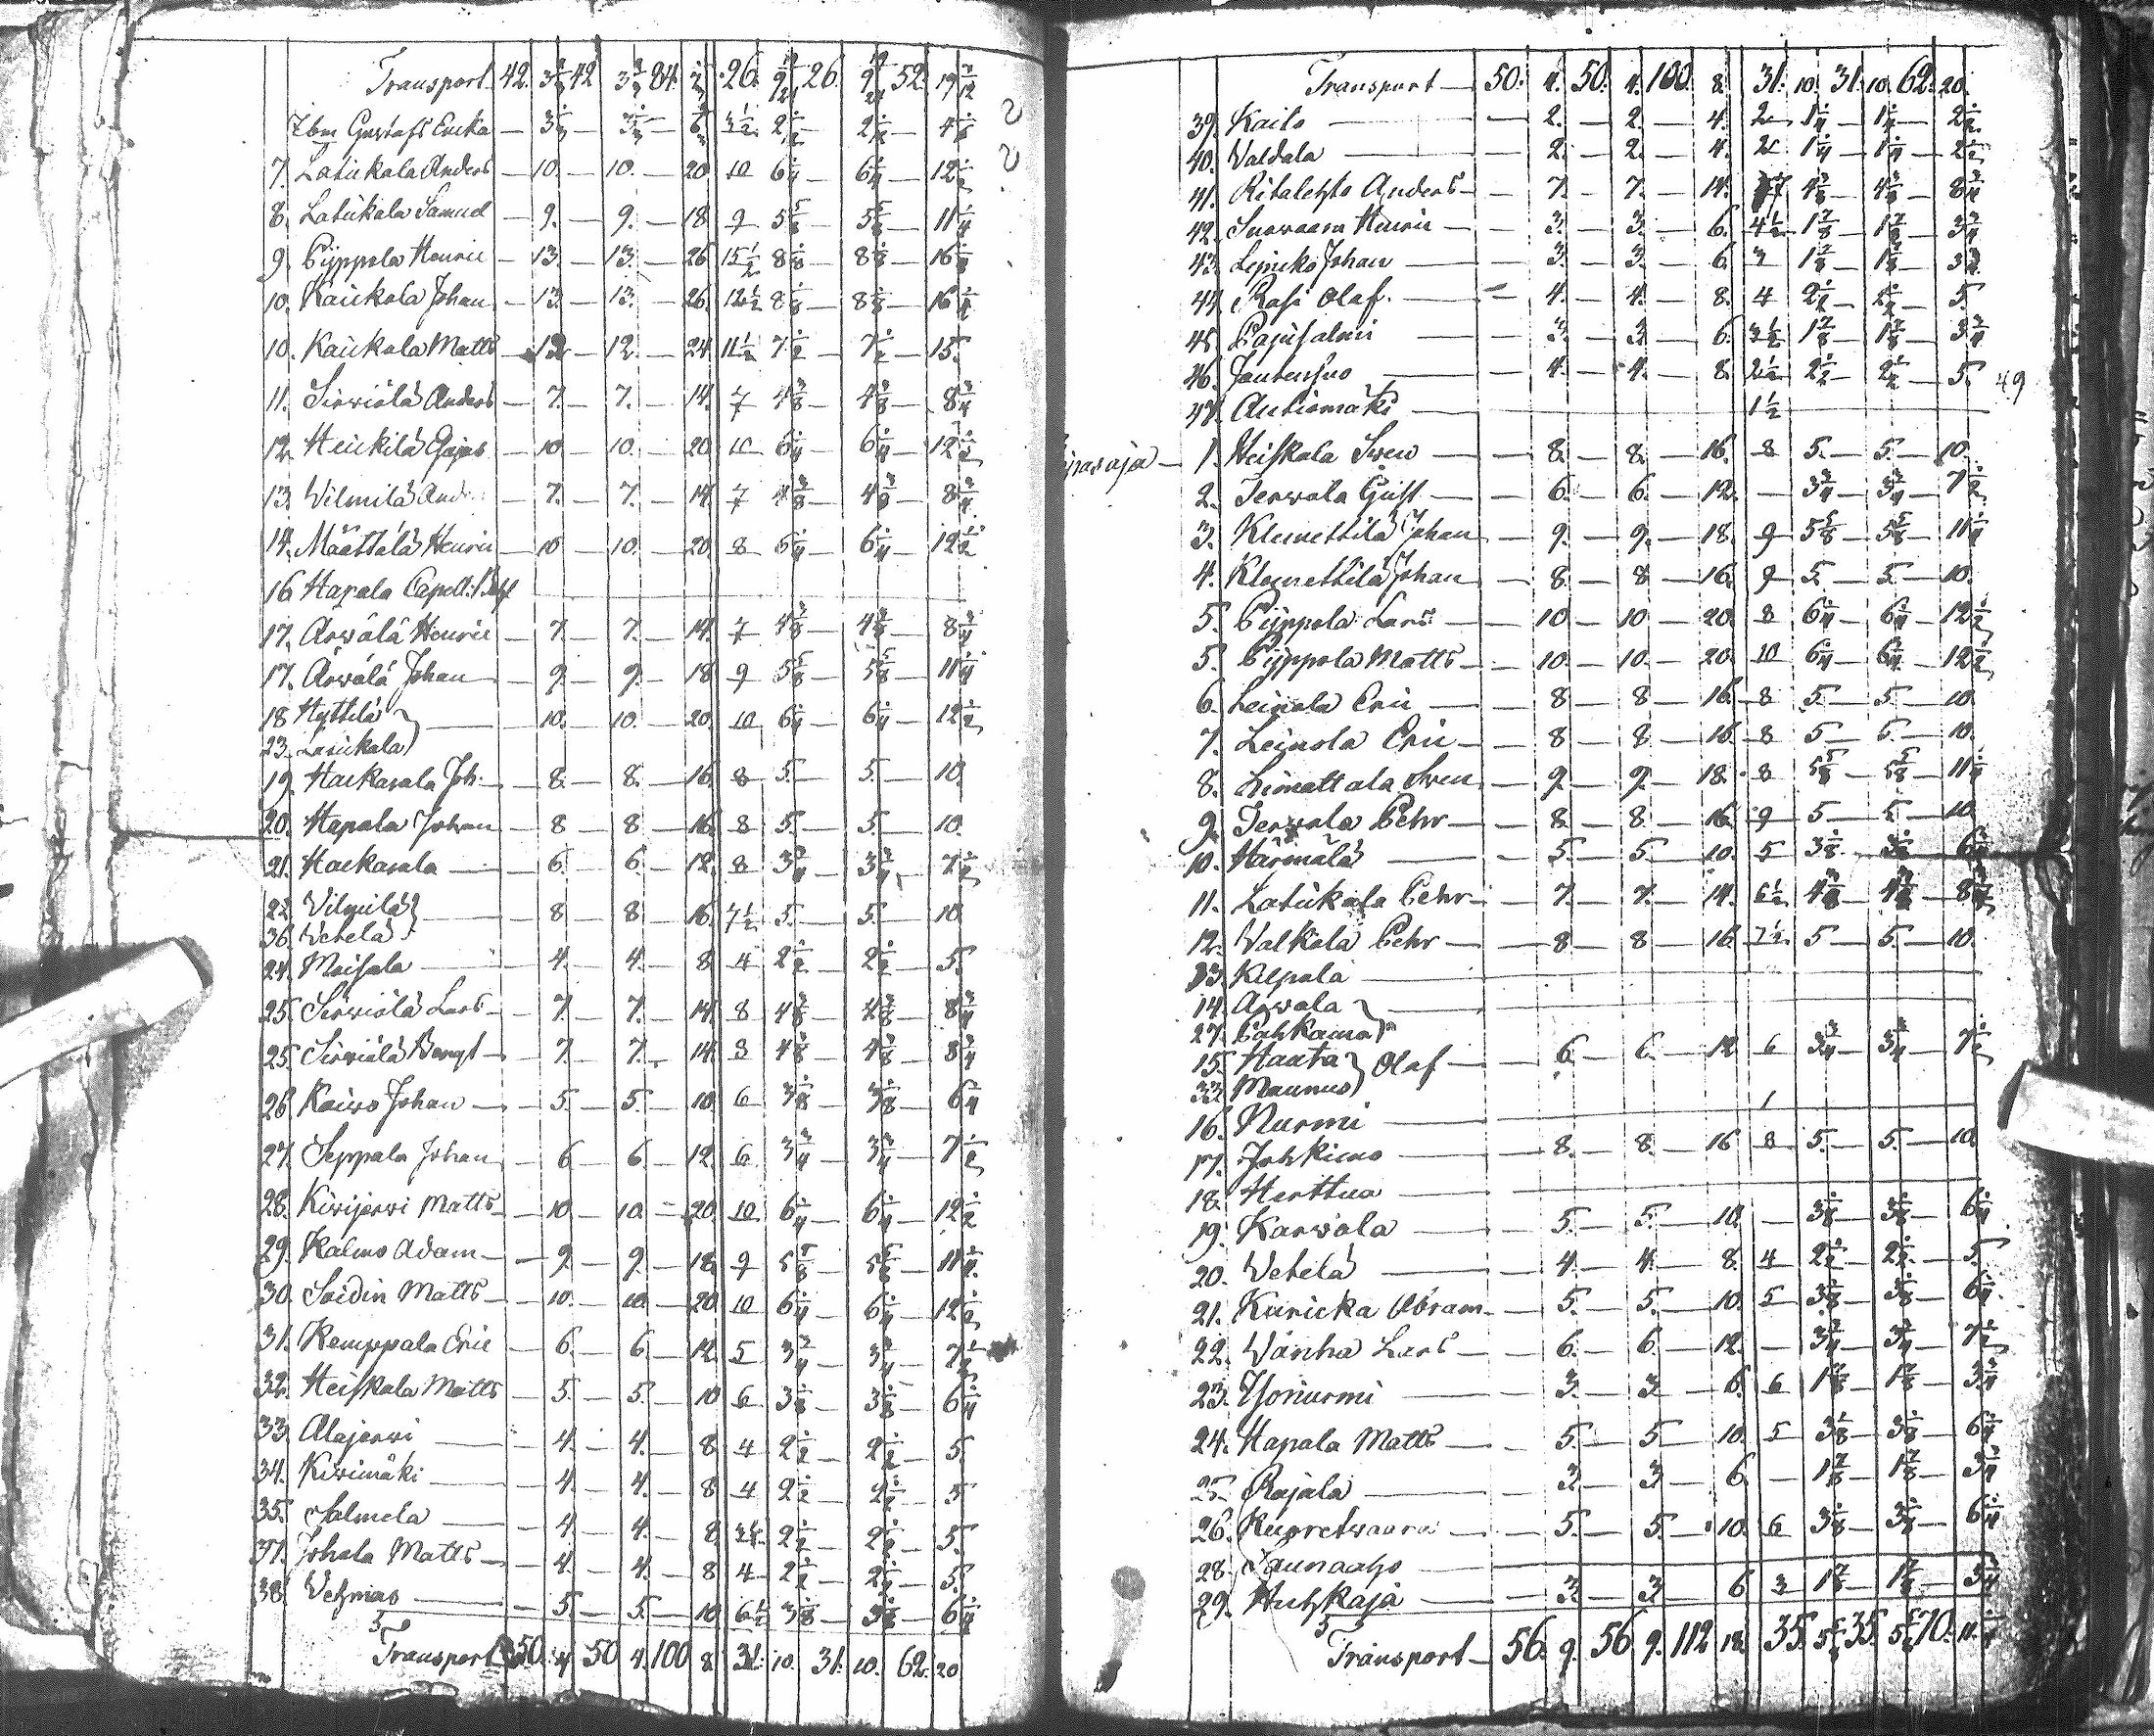 Transport 42. 3 2/3 42 3 2/3 84. 26. 26. 52. 19 7/12
7. Latukala Anders — 10. — 10. — 20 10 6 1/4 — 6 1/4 — 12 1/2
8. Latukala Samuel — 9. — 9. — 18 9 5 5/8 5 5/8 — 11 1/4
9. Pyppola Henric — 13. — 13. — 26 15 1/2 8 1/8 — 8 1/8 — 16 1/4
10. Kaukola Johan — 13. — 13. — 26. 12 1/2 8 1/8 — 8 1/8 — 16 1/4
10. Kaukola Matts — 12 — 12. — 24 11 1/2 7 1/2 — 7 1/2 — 15.
11. Sirwiölä Anders — 7. — 7. — 14. 7 4 3/8 — 4 3/8 — 8 3/4
12. Heickilä — 10 — 10. — 20 10 6 1/4 — 6 1/4 — 12 1/2
13. Wilmilä — 7. — 7. — 14. 7 4 3/8 — 4 3/8 — 8 3/4
14. Määttälä Henric — 10 — 10. — 20. 8 6 1/4 — 6 1/4 — 12 1/2
16 Hapala Capell:
17. Arwälä Henric — 7. — 7. — 14. 7 4 3/8 — 4 3/8 — 8 3/4
17. Arwälä Johan — 9. — 9. — 18 9 5 5/8 — 5 5/8 — 11 1/4
18 Hyttilä
23. } — 10. — 10. — 20. 10 6 1/4 — 6 1/4 — 12 1/2
19. Hackarala Joh. — 8. — 8. — 16 8 5. — 5. — 10.
20. Hapala Johan — 8 — 8 — 16 8 5. — 5. — 10.
21. Hackarala — 6. — 6. — 12. 8 3 3/4 — 3 3/4 — 7 1/2
22. Wilmilä
36. Wetelä } — 8 — 8 — 16. 7 1/2 5. — 5. — 10
24. Moisala — 4. — 4. — 8 4 2 1/2 — 2 1/2 — 5.
25. Sirwiölä Lars — 7. — 7. — 14 8 4 3/8 — 4 3/8 — 8 3/4
25. Sirwiölä Bengt — 7. — 7. — 14. 8 4 3/8 — 4 3/8 — 8 3/4
26 Kaiwo Johan — 5. — 5. — 10 6 3 1/8 — 3 1/8 — 6 1/4
27. Seppala Johan — 6 — 6 — 12. 6 3 3/4 — 3 3/4 — 7 1/2
28. Kiwijerwi Matts — 10 — 10. — 20 10 6 1/4 — 6 1/4 — 12 1/2
29. Kalmo Adam — 9. — 9. — 18 9 5 5/8 — 5 5/8 — 11 1/4
30. Soidin Matts — 10. — 10. — 20 10 6 1/4 — 6 1/4 — 12 1/2
31. Kemppala Eric — 6. — 6. — 12. 5 3 3/4 — 3 3/4 — 7 1/2
32. Heiskala Matts — 5. — 5. — 10 6 3 1/8 — 3 1/8 — 6 1/4
33. Alajerwi — 4. — 4. — 8 4 2 1/2 — 2 1/2 — 5
34. Kiwimäki — 4. — 4. — 8 4 2 1/2 — 2 1/2 — 5
35. Salmela — 4. — 4. — 8 2 1/2 — 2 1/2 — 5.
37. Johala Matts — 4. — 4. — 8 4 2 1/2 — 2 1/2 — 5.
38. Wehmas — 5. — 5. — 10 6 1/2 3 1/8 — 3 1/8 — 6 1/4
Transport 50. 4 50 4. 100 8 31. 10. 31. 10. 62. 20
Transport — 50. 4. 50. 4. 100. 8. 31. 10. 31. 10. 62. 20.
39. Kailo — 2. — 2. — 4. 2 1 1/4 — 1 1/4 — 2 1/2
40. Waldala — 2. — 2. — 4. 2 1 1/4 — 1 1/4 — 2 1/2
41. Ritalehto Anders — 7. — 7. — 14. 7 4 3/8 — 4 3/8 — 8 3/4
42. Henric — 3. — 3. — 6. 4 1/2 1 7/8 — 1 7/8 — 3 3/4
43. Johan — 3. — 3. — 6. 3 1 7/8 — 1 7/8 — 3 3/4
44. Rasi Olaf — 4. — 4. — 8. 4 2 1/2 — 2 1/2 — 5.
45. Pajusalmi — 3. — 3 — 6. 3 1/2 1 7/8 — 1 7/8 — 3 3/4
46. Joutensuo — 4. — 4. — 8. 2 1/2 2 1/2 — 2 1/2 — 5. 49
47. Autiomäki — 1 1/2
1. Heiskala Swen — 8. — 8. — 16. 8 5. — 5. — 10.
2. Jerwala Gust — 6. — 6. — 12. — 3 3/4 — 3 3/4 — 7 1/2
3. Klemettilä Johan — 9. — 9. — 18. 9 5 5/8 — 5 5/8 — 11 1/4
4. Klemettilä Johan — 8. — 8 — 16. 9 5. — 5. — 10.
5. Pyppola Lars — 10 — 10 — 20. 8 6 1/4 — 6 1/4 — 12 1/2
5. Pyppola Matts — 10 — 10. — 20 10 6 1/4 — 6 1/4 — 12 1/2
6. Leinola Eric — 8 — 8 — 16. 8 5. — 5. — 10
7. Leinola Eric — 8 — 8 — 16 8 5 — 5. — 10.
8. Limattala Swen — 9. — 9. — 18. 8 5 5/8 — 5 5/8 — 11 1/4
9. Jerwala Pehr — 8. — 8. — 16. 9 5 — 5. — 10
10. Härmälä — 5. — 5. — 10. 5 3 1/8 — 3 1/8 — 6 1/4
11. Latukala Pehr — 7. — 7. — 14. 6 1/2 4 3/8 — 4 3/8 — 8 3/4
12. Walkola Pehr — 8 — 8 — 16. 7 1/2 5 — 5. — 10
13. Kilpala
14. Arwala
27. Pahkama }
15. Haata
33. Maunus } Olaf — 6. — 6. — 12 6 3 3/4 — 3 3/4 — 7 1/2
16. Nurmi — 1
17. Johkimo — 8. — 8. — 16 8 5. — 5. — 10
18. Herttua
19. Karwola — 5. — 5. — 10. — 3 1/8 — 3 1/8 — 6 1/4
20. Wetelä — 4. — 4. — 8. 4 2 1/2 — 2 1/2 — 5
21. Kuricka Abram — 5. — 5. — 10. 5 3 1/8 — 3 1/8 — 6 1/4
22. Wanha Lars — 6. — 6. — 12. — 3 3/4 — 3 3/4 — 7 1/2
23. Isonurmi — 3. — 3. — 6. 6 1 7/8 — 1 7/8 — 3 3/4
24. Hapala Matts — 5. — 5 — 10. 5 3 1/8 — 3 1/8 — 6 1/4
25. Rajala — 3. — 3 — 6. — 1 7/8 — 1 7/8 — 3 3/4
26. — 5. — 5. — 10. 6 3 1/8 — 3 1/8 — 6 1/4
28. Saunaaho
29. Huhkaja — 3. — 3 — 6 3 1 7/8 — 1 7/8 — 3 3/4
Transport — 56. 9. 56 9. 112 18. 35. 35. 70. 11.